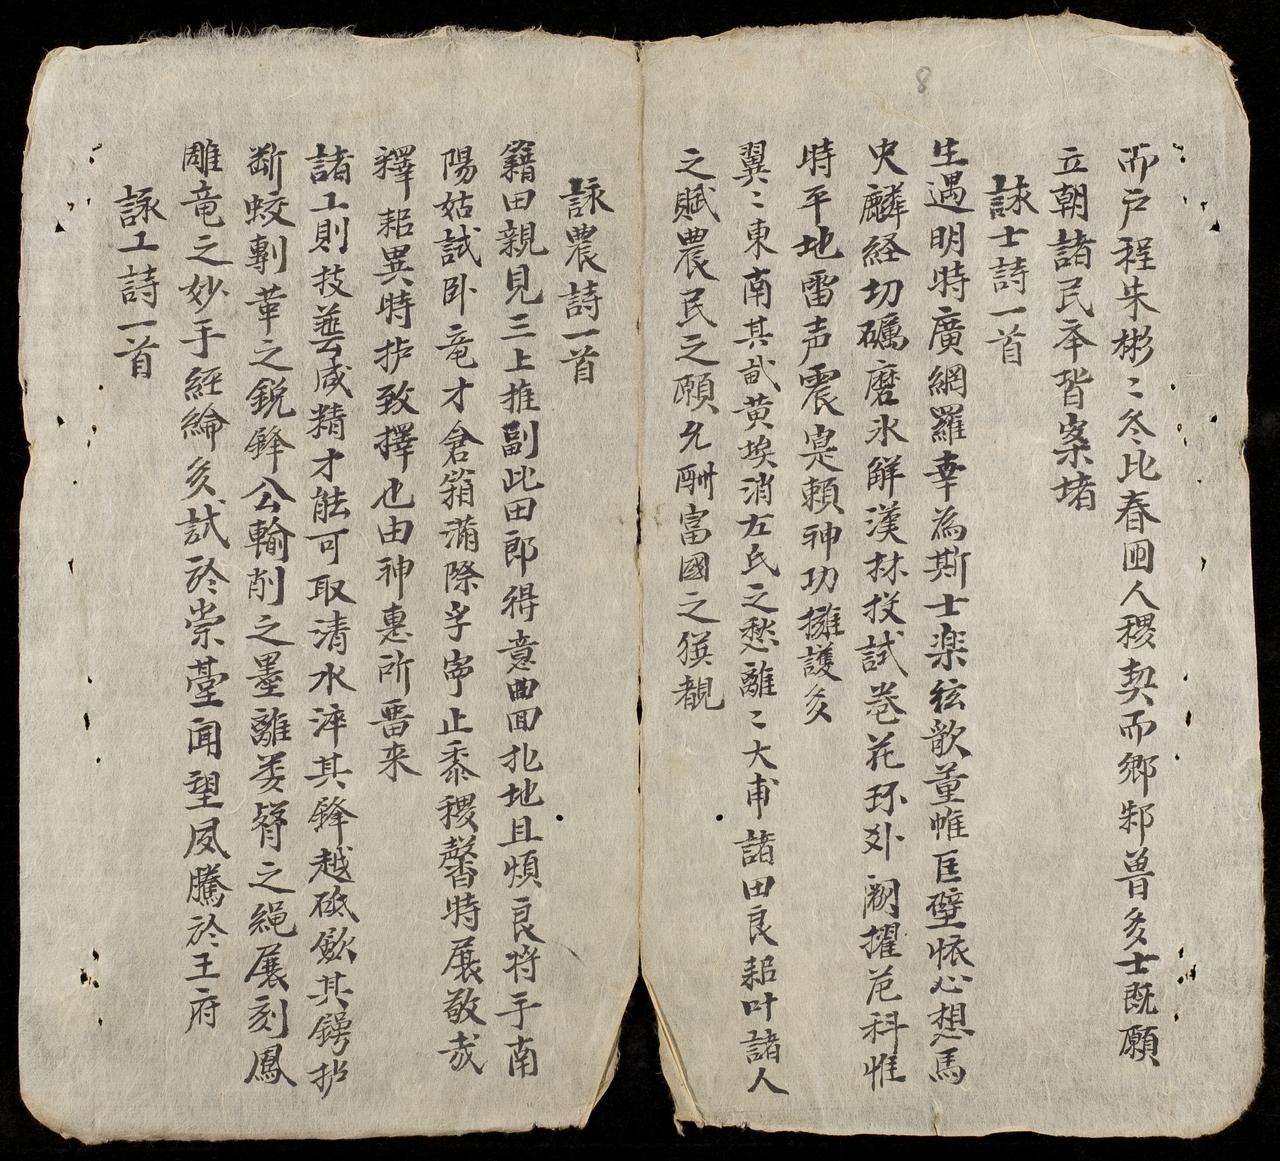 8
而戶程朱彬〻冬比春囬人稷契而鄉邾曽多士既願
立朝諸民夲皆案堵
詠士詩一首
生遇明時廣綱羅幸為斯士楽絃歌董帷匡壁恢心想馬
史麟経切礪磨氷解漢林投試巻花环外闕擢芭科惟
時平地雷声震寔頼神功擁護多
翼〻東南其畝黄埃消左氏之愁離〻大甫諸田良耜叶諸人
之賦農民之願允酬富國之猱覩
詠農詩一首
籍田親見三上推副此田郎得意曲囬北地且煩良将手南
陽姑試卧竜才倉箱满際孚寕止黍稷馨時展敬㦲
釋耜異時抄致擇也由神惠所畨来
諸工則技善咸精才能可取清水淬其鋒越砥歛其鍔抄
断蛟剸革之銳鋒公輸削之墨離娄督之縄展刻鳳
雕竜之妙手経綸多試於崇䑓闻望夙騰於王府
詠工詩一首